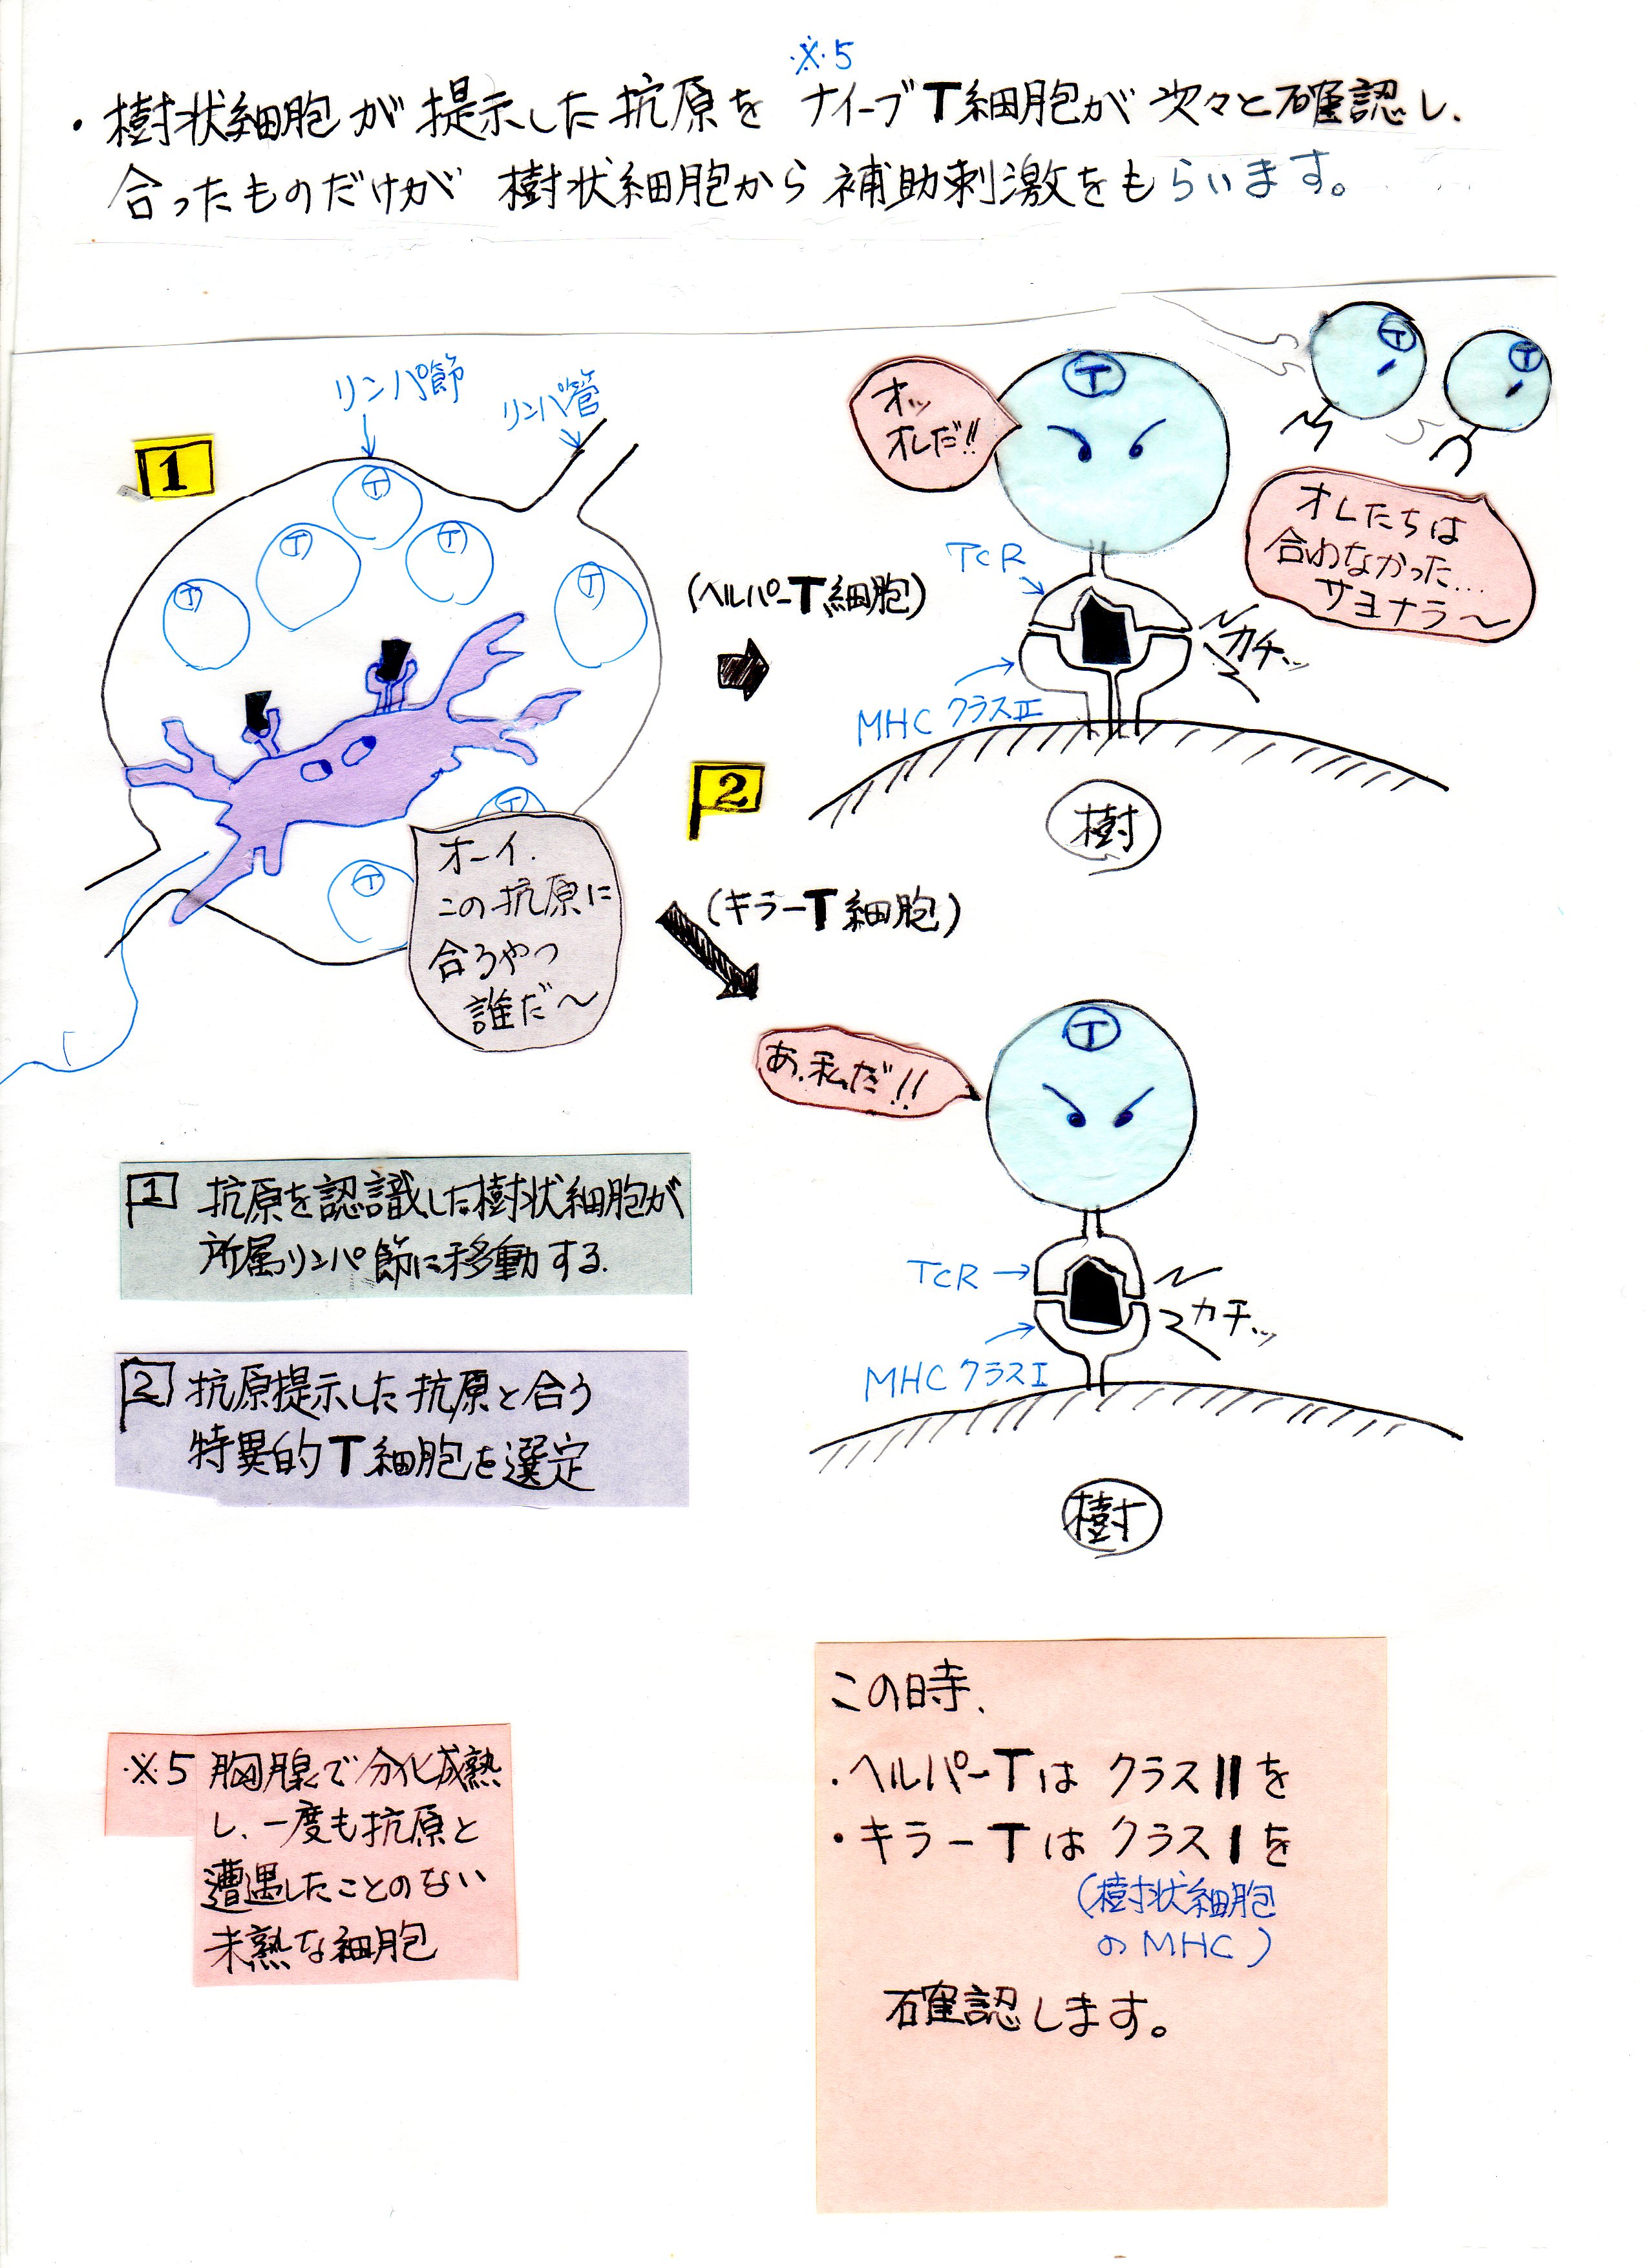 ※5
・樹状細胞が提示した抗原をナイーブT細胞が次々と確認し、
合ったものだけが樹状細胞から補助刺激をもらいます。
1
リンパ節
リンパ管
T
T
T
T
T
T
T
オーイ.
この抗原に
合うやつ
誰だ〜
(ヘルパーT細胞)
オッ
オレだ!!
T
T
T
オレたちは
合わなかった...
サヨナラ〜
TCR
カチッ
MHC クラスⅡ
樹
2
(キラーT細胞)
あ、私だ!!
T
TCR
カチッ
MHC クラスⅠ
樹
1 抗原を認識した樹状細胞が
所属リンパ節に移動する.
2 抗原提示した抗原と合う
特異的T細胞を選定
※5 胸腺で分化成熟
し、一度も抗原と
遭遇したことのない
未熟な細胞
この時、
・ヘルパーTはクラスⅡを
・キラーTはクラスⅠを
(樹状細胞
のMHC)
確認します。